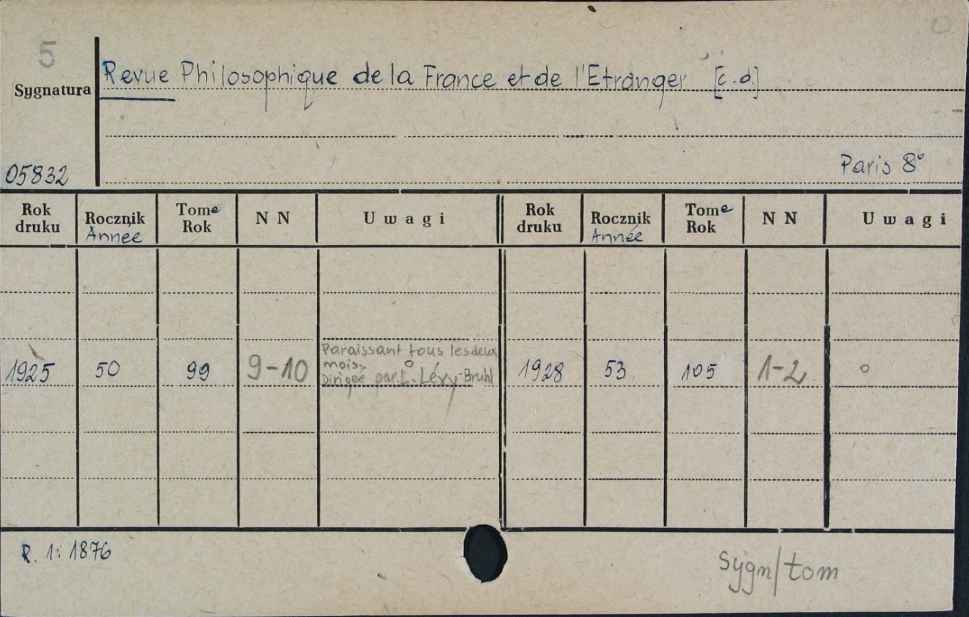 5
Sygnatura
Revue Philosophique de la France et de l'Etranger [c.d.]
05832
Paris 8°
Rok druku Rocznik Année Tome Rok N N Uwagi Rok druku Rocznik Année Tome Rok N N Uwagi
Paraissant tous les deux
mois,
1925 50 99 9-10 Dirigée par L. Lévy-Bruhl 1928 53 105 1-2
R. 1: 1876
Sygn/tom